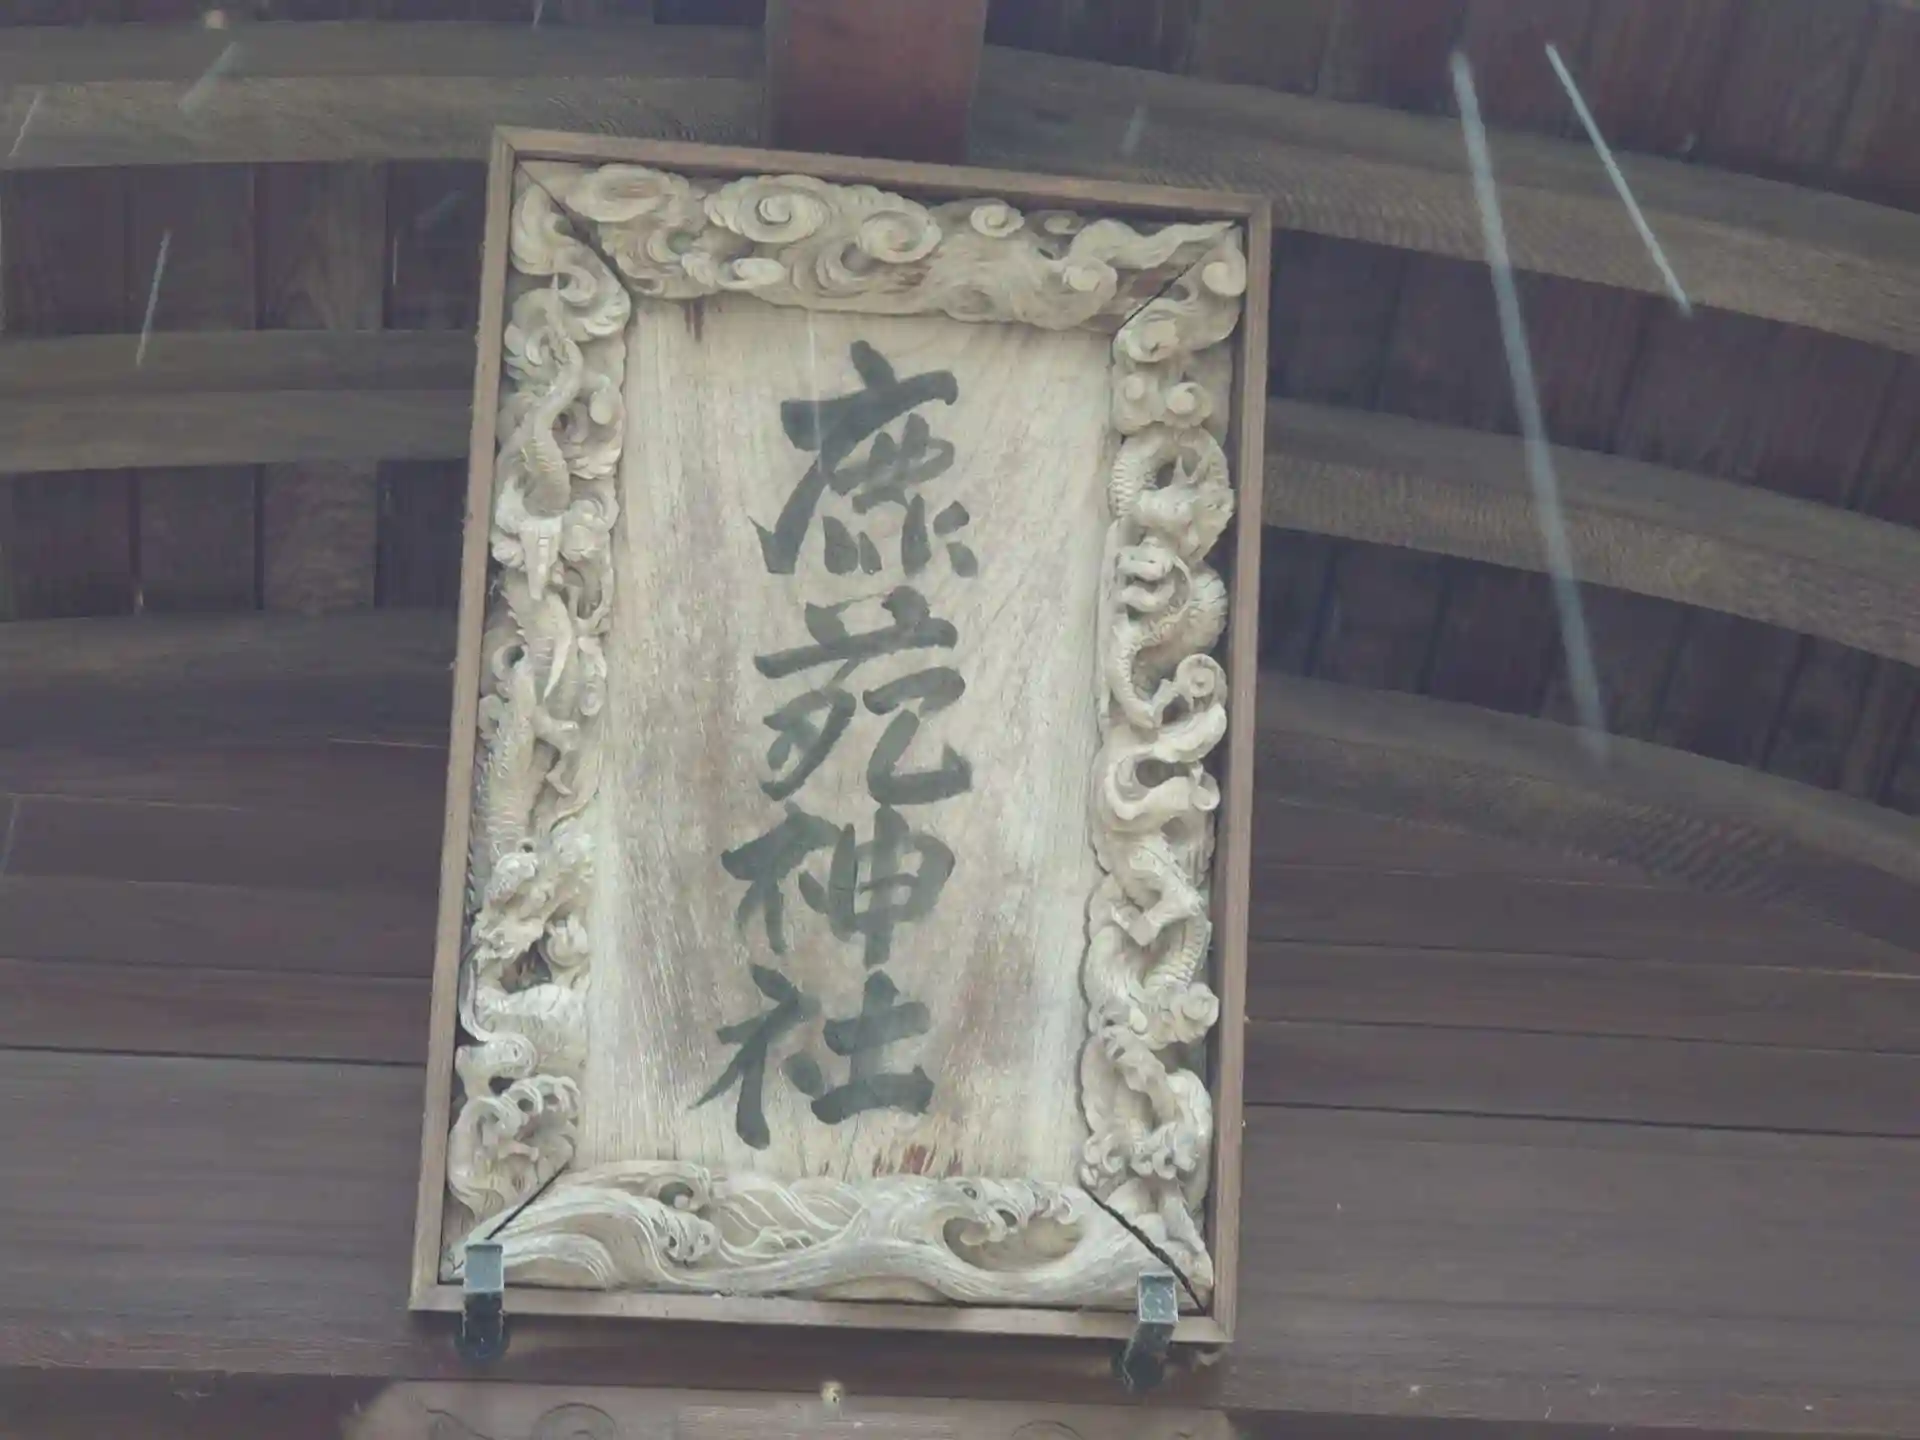 鹿苑神社